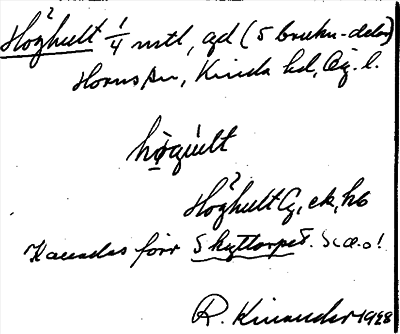 Höghult 1/4 mtl, gd (5 bruku-delar)
Horns sn, Kinda hd, Ög. l.
hö̀gúlt
Höghult G, ek, hb
Kallades förr Skyttorpet. S.d.o!
R. Kinander 1928